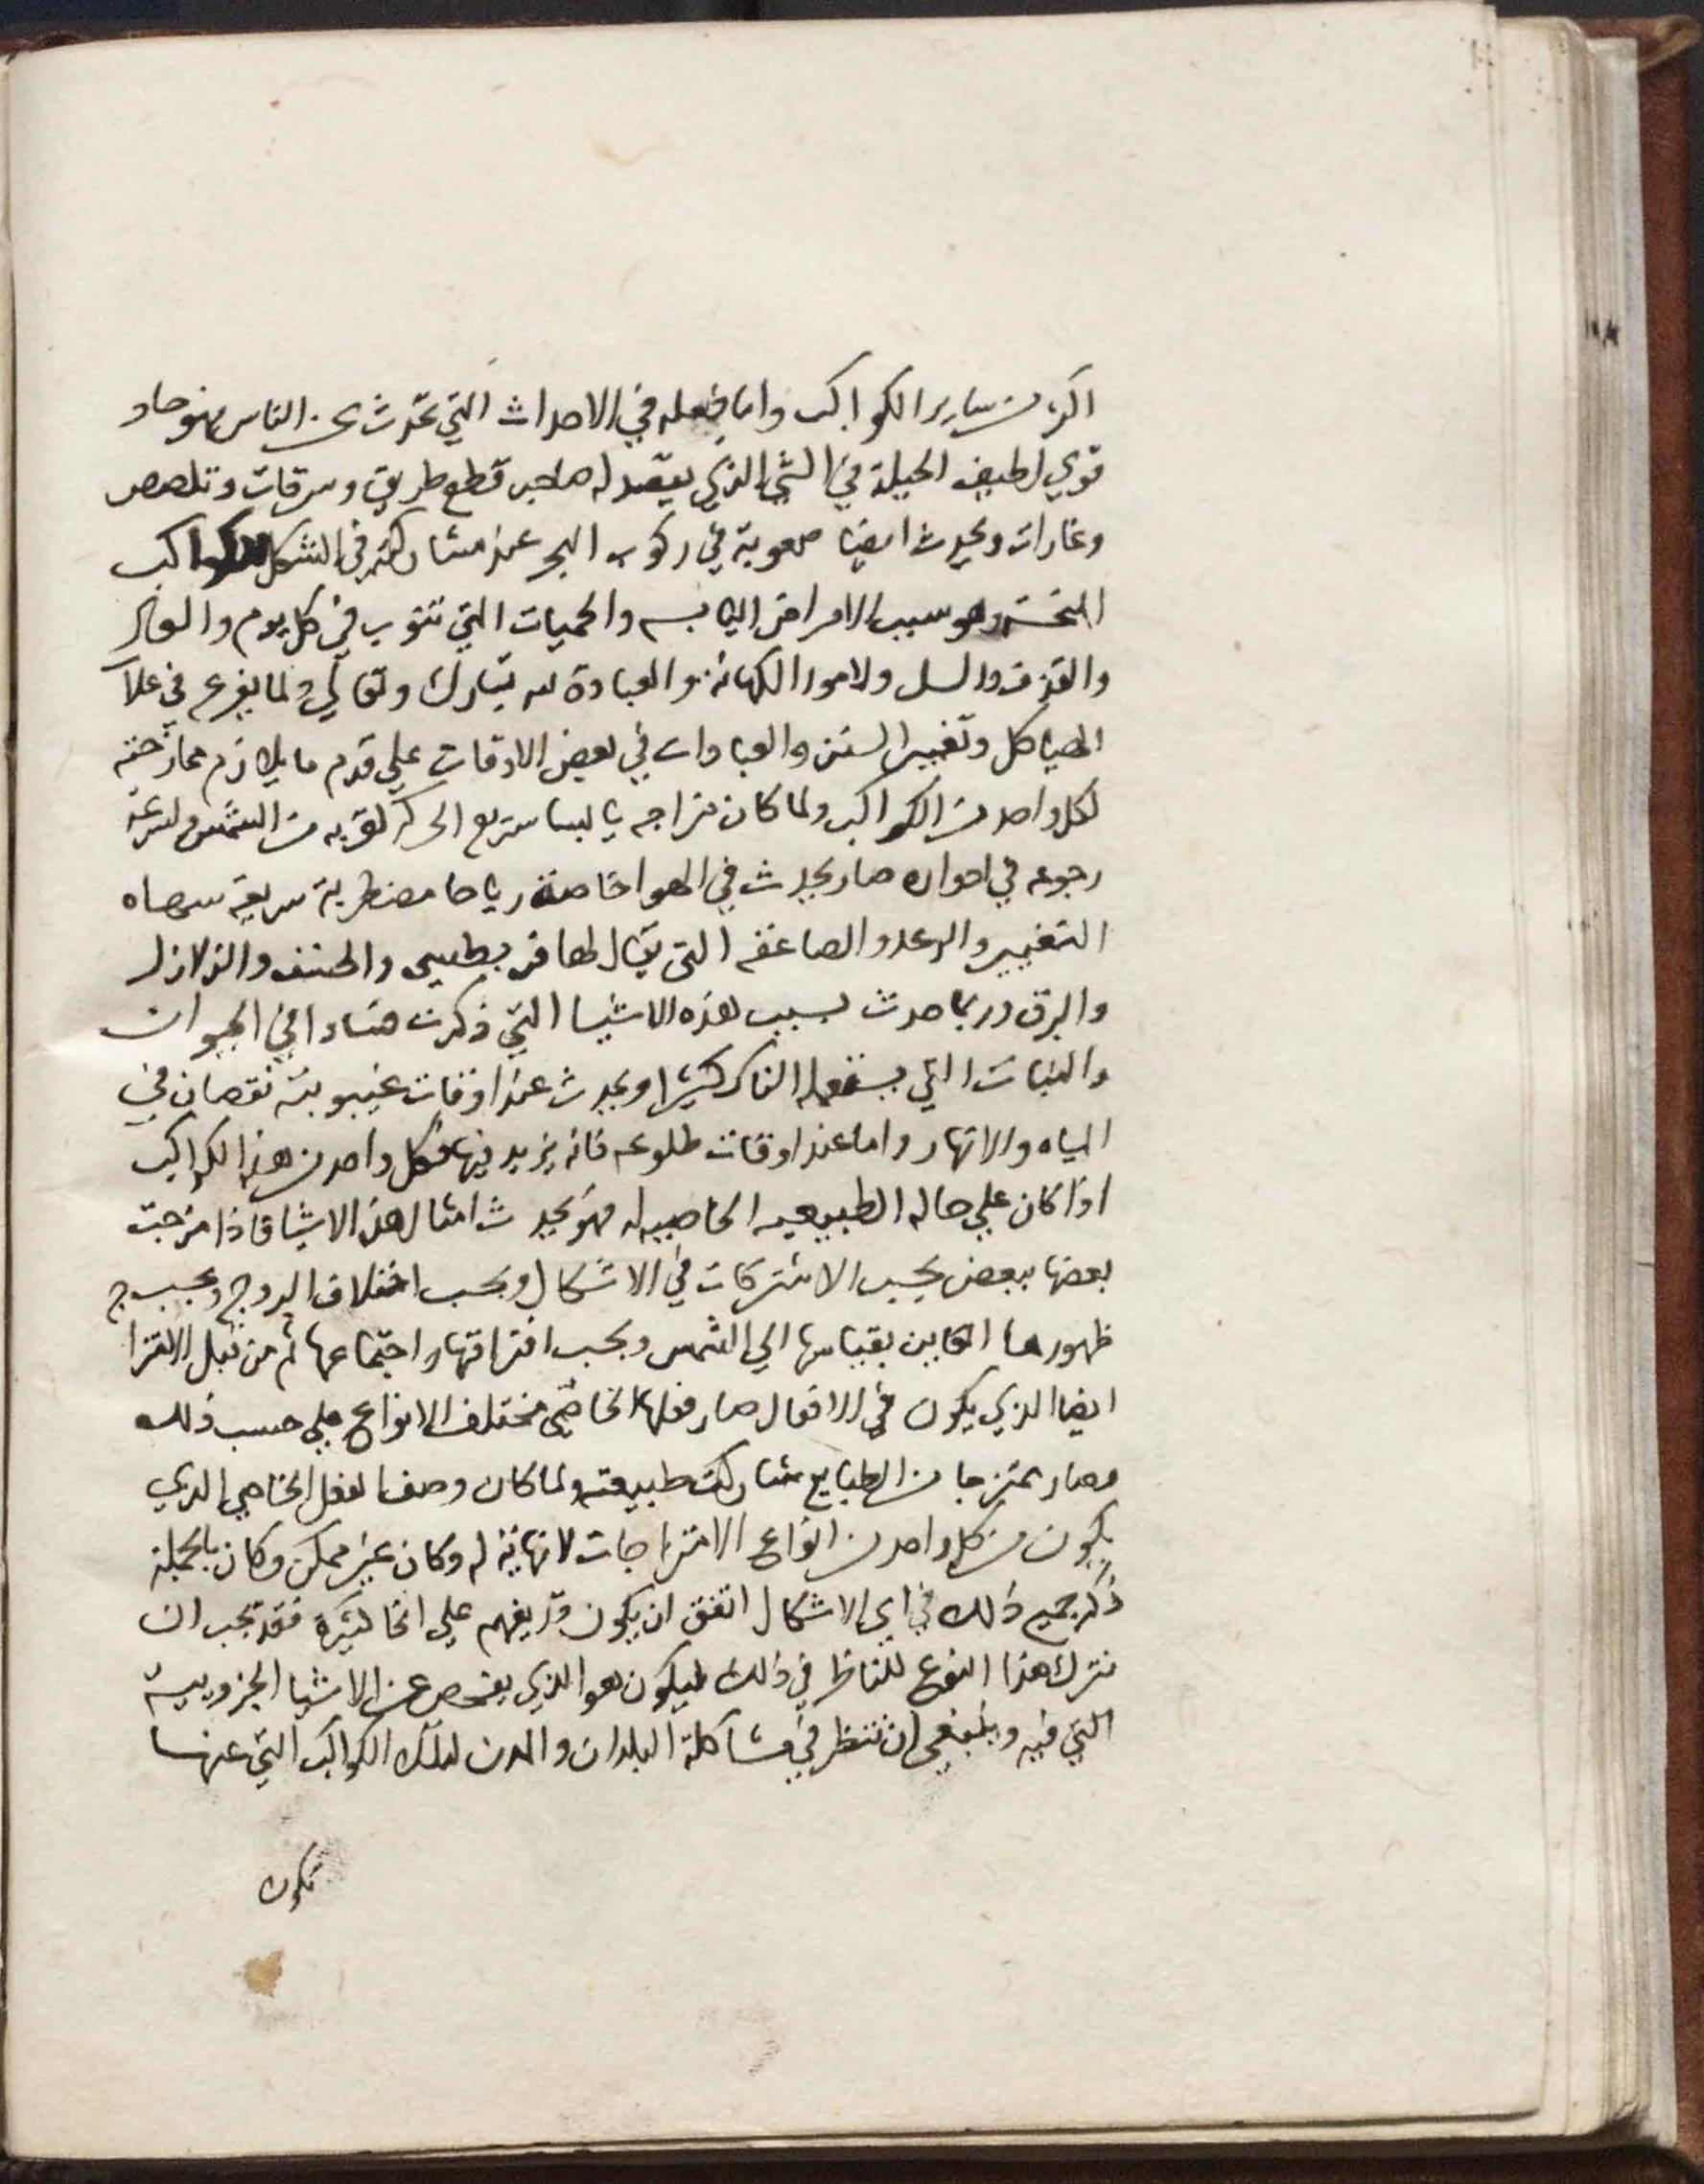 اكثر من ساير الكواكب واما فعله في الاحداث التي تحدث على الناس فهو حاد
قوي لطيف الحيلة في الشي الذي يقصد له صاحب قطع طريق وسرقات وتلصص
وغارات ويحدث ايضا صعوبة في ركوب البحر عند مشاركته في الشكل للكواكب
النحسة وهو سبب الامراض اليابسه والحميات التي تنوب في كل يوم والسعال
والقذف والسل ولامور الكهانة والعبادة لله تبارك وتعالي ولما يفرع في غلات
الهياكل وتغيير السنن والعبادات في بعض الاوقات علي قدم ما يلازم ممازجته
لكل واحد من الكواكب ولما كان مزاجه يابسا سريع الحركة لقربه من الشمس ولسرعة
رجوعه في ادواره صار يحدث في الهوا خاصة رياحا مضطربة سريعة سهله
التغيير والرعد والصاعقه التي يقال لها فريطيس والخسف والزلازل
والبرق وربما حدث بسبب هذه الاشيا التي ذكرت فسادا في الحيوان
والنبات التي ينتفع به الناس كثيرا ويحدث عند اوقات غيبوبته نقصان في
المياه والانهار واما عند اوقات طلوعه فانه يزيد فيها فكل واحد من هذه الكواكب
اذا كان علي حاله الطبيعيه الخاصيه له فهو يحدث امثال هذه الاشيا فاذا مزجت
بعضها ببعض بحسب الاشتركات في الاشكال وبحسب اختلاف البروج وبحسب ج
ظهورها الكاين بقياسها الي الشمس وبحسب افتراقها واجتماعها ثم من قبل الامتزا
ايضا الذي يكون في الافعال صار فعلها الخاصي مختلف الانواع علي حسب ذلك
وصار ممتزجا من الطبايع شاركت طبيعته ولما كان وصف الفعل الخاصي الذي
يكون من كل واحد من انواع الامتزاجات لا نهاية له وكان غير ممكن وكان بالجملة
ذكر جميع ذلك في اي الاشكال اتفق ان يكون قد يفهم علي انحا كثيرة فقد يجب ان
نترك هذا النوع للناظر في ذلك ليكون هو الذي يفحص عن الاشيا الجزوييه
التي فيه وينبغي ان ننظر في مشاكلة البلدان والمدن لتلك الكواكب التي عنها
تكون